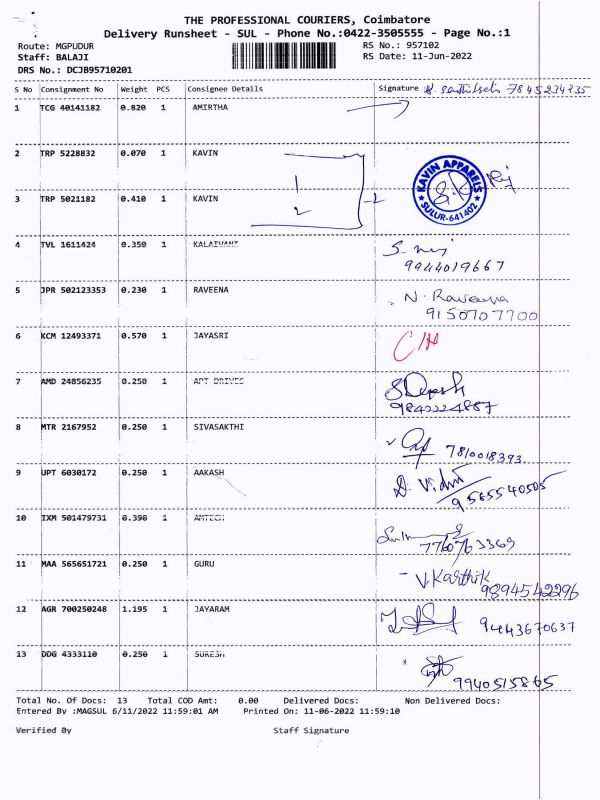 THE PROFESSIONAL COURIERS, Coimbatore
Delivery Runsheet - SUL - Phone No.:0422-3505555 - Page No.:1
Route: MGPUDUR RS No.: 957102
Staff: BALAJI RS Date: 11-Jun-2022
DRS No.: DCJB95710201
S No Consignment No Weight PCS Consignee Details Signature 7845234735
1 TCG 40141182 0.820 1 AMIRTHA
2 TRP 5228832 0.070 1 KAVIN
1
KAVIN APPARELS
SULUR-641402
3 TRP 5021182 0.410 1 KAVIN 2
4 TVL 1611424 0.350 1 KALAIVANI
9944019667
5 JPR 502123353 0.230 1 RAVEENA N. Raveena
9150707700
6 KCM 12493371 0.570 1 JAYASRI
7 AMD 24856235 0.250 1 APT DRIVES
9842224887
8 MTR 2167952 0.250 1 SIVASAKTHI
7810018393
9 UPT 6030172 0.250 1 AAKASH
9585540505
10 IXM 501479731 0.390 1 AMTECH
7760763369
11 MAA 565651721 0.250 1 GURU V. Karthik
9894542296
12 AGR 700250248 1.195 1 JAYARAM 9443670637
13 DDG 4333110 0.250 1 SURESH
9940515865
Total No. Of Docs: 13 Total COD Amt: 0.00 Delivered Docs: Non Delivered Docs:
Entered By :MAGSUL 6/11/2022 11:59:01 AM Printed On: 11-06-2022 11:59:10
Verified By Staff Signature